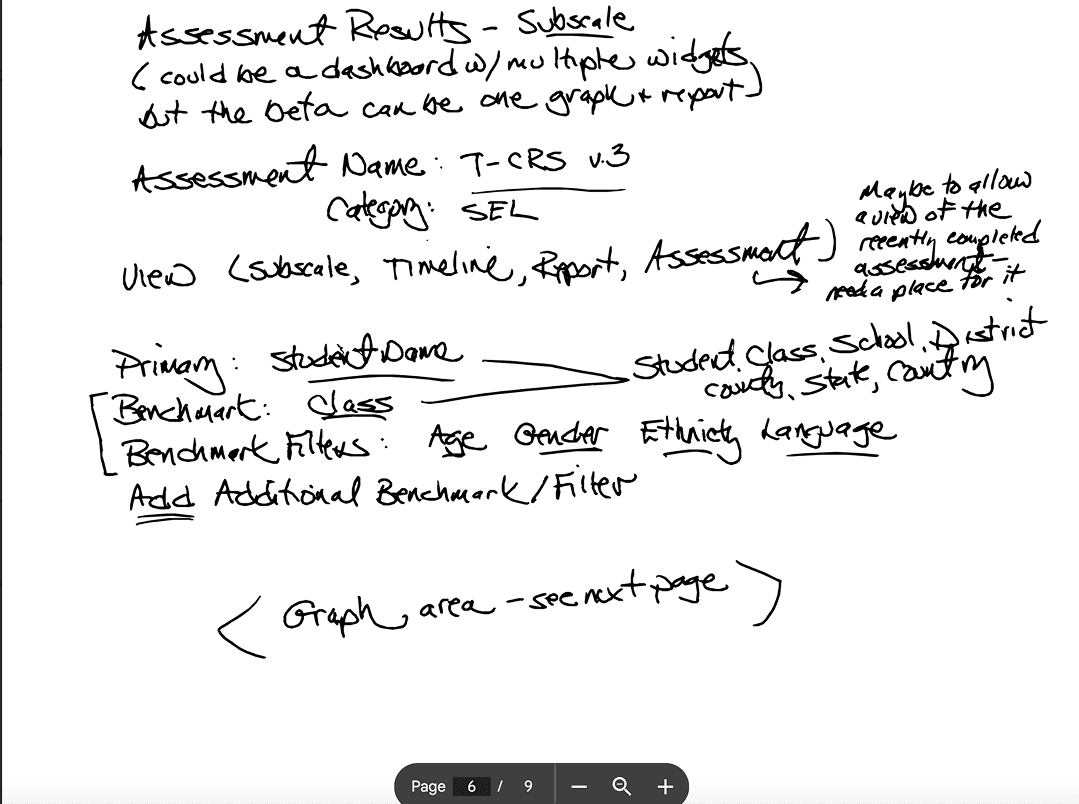 Assessment Results - Subscale
(could be a dashboard w/ multiple widgets,
but the beta can be one graph + report)
Assessment Name: T-CRS v.3
Category: SEL
View (Subscale, Timeline, Report, Assessment)
Maybe to allow
a view of the
recently completed
assessment -
need a place for it
Primary: Student Name
Student, Class, School, District
County, State, Country
Benchmark: Class
Benchmark Filters: Age Gender Ethnicity Language
Add Additional Benchmark/Filter
< Graph area - see next page >
Page 6 / 9